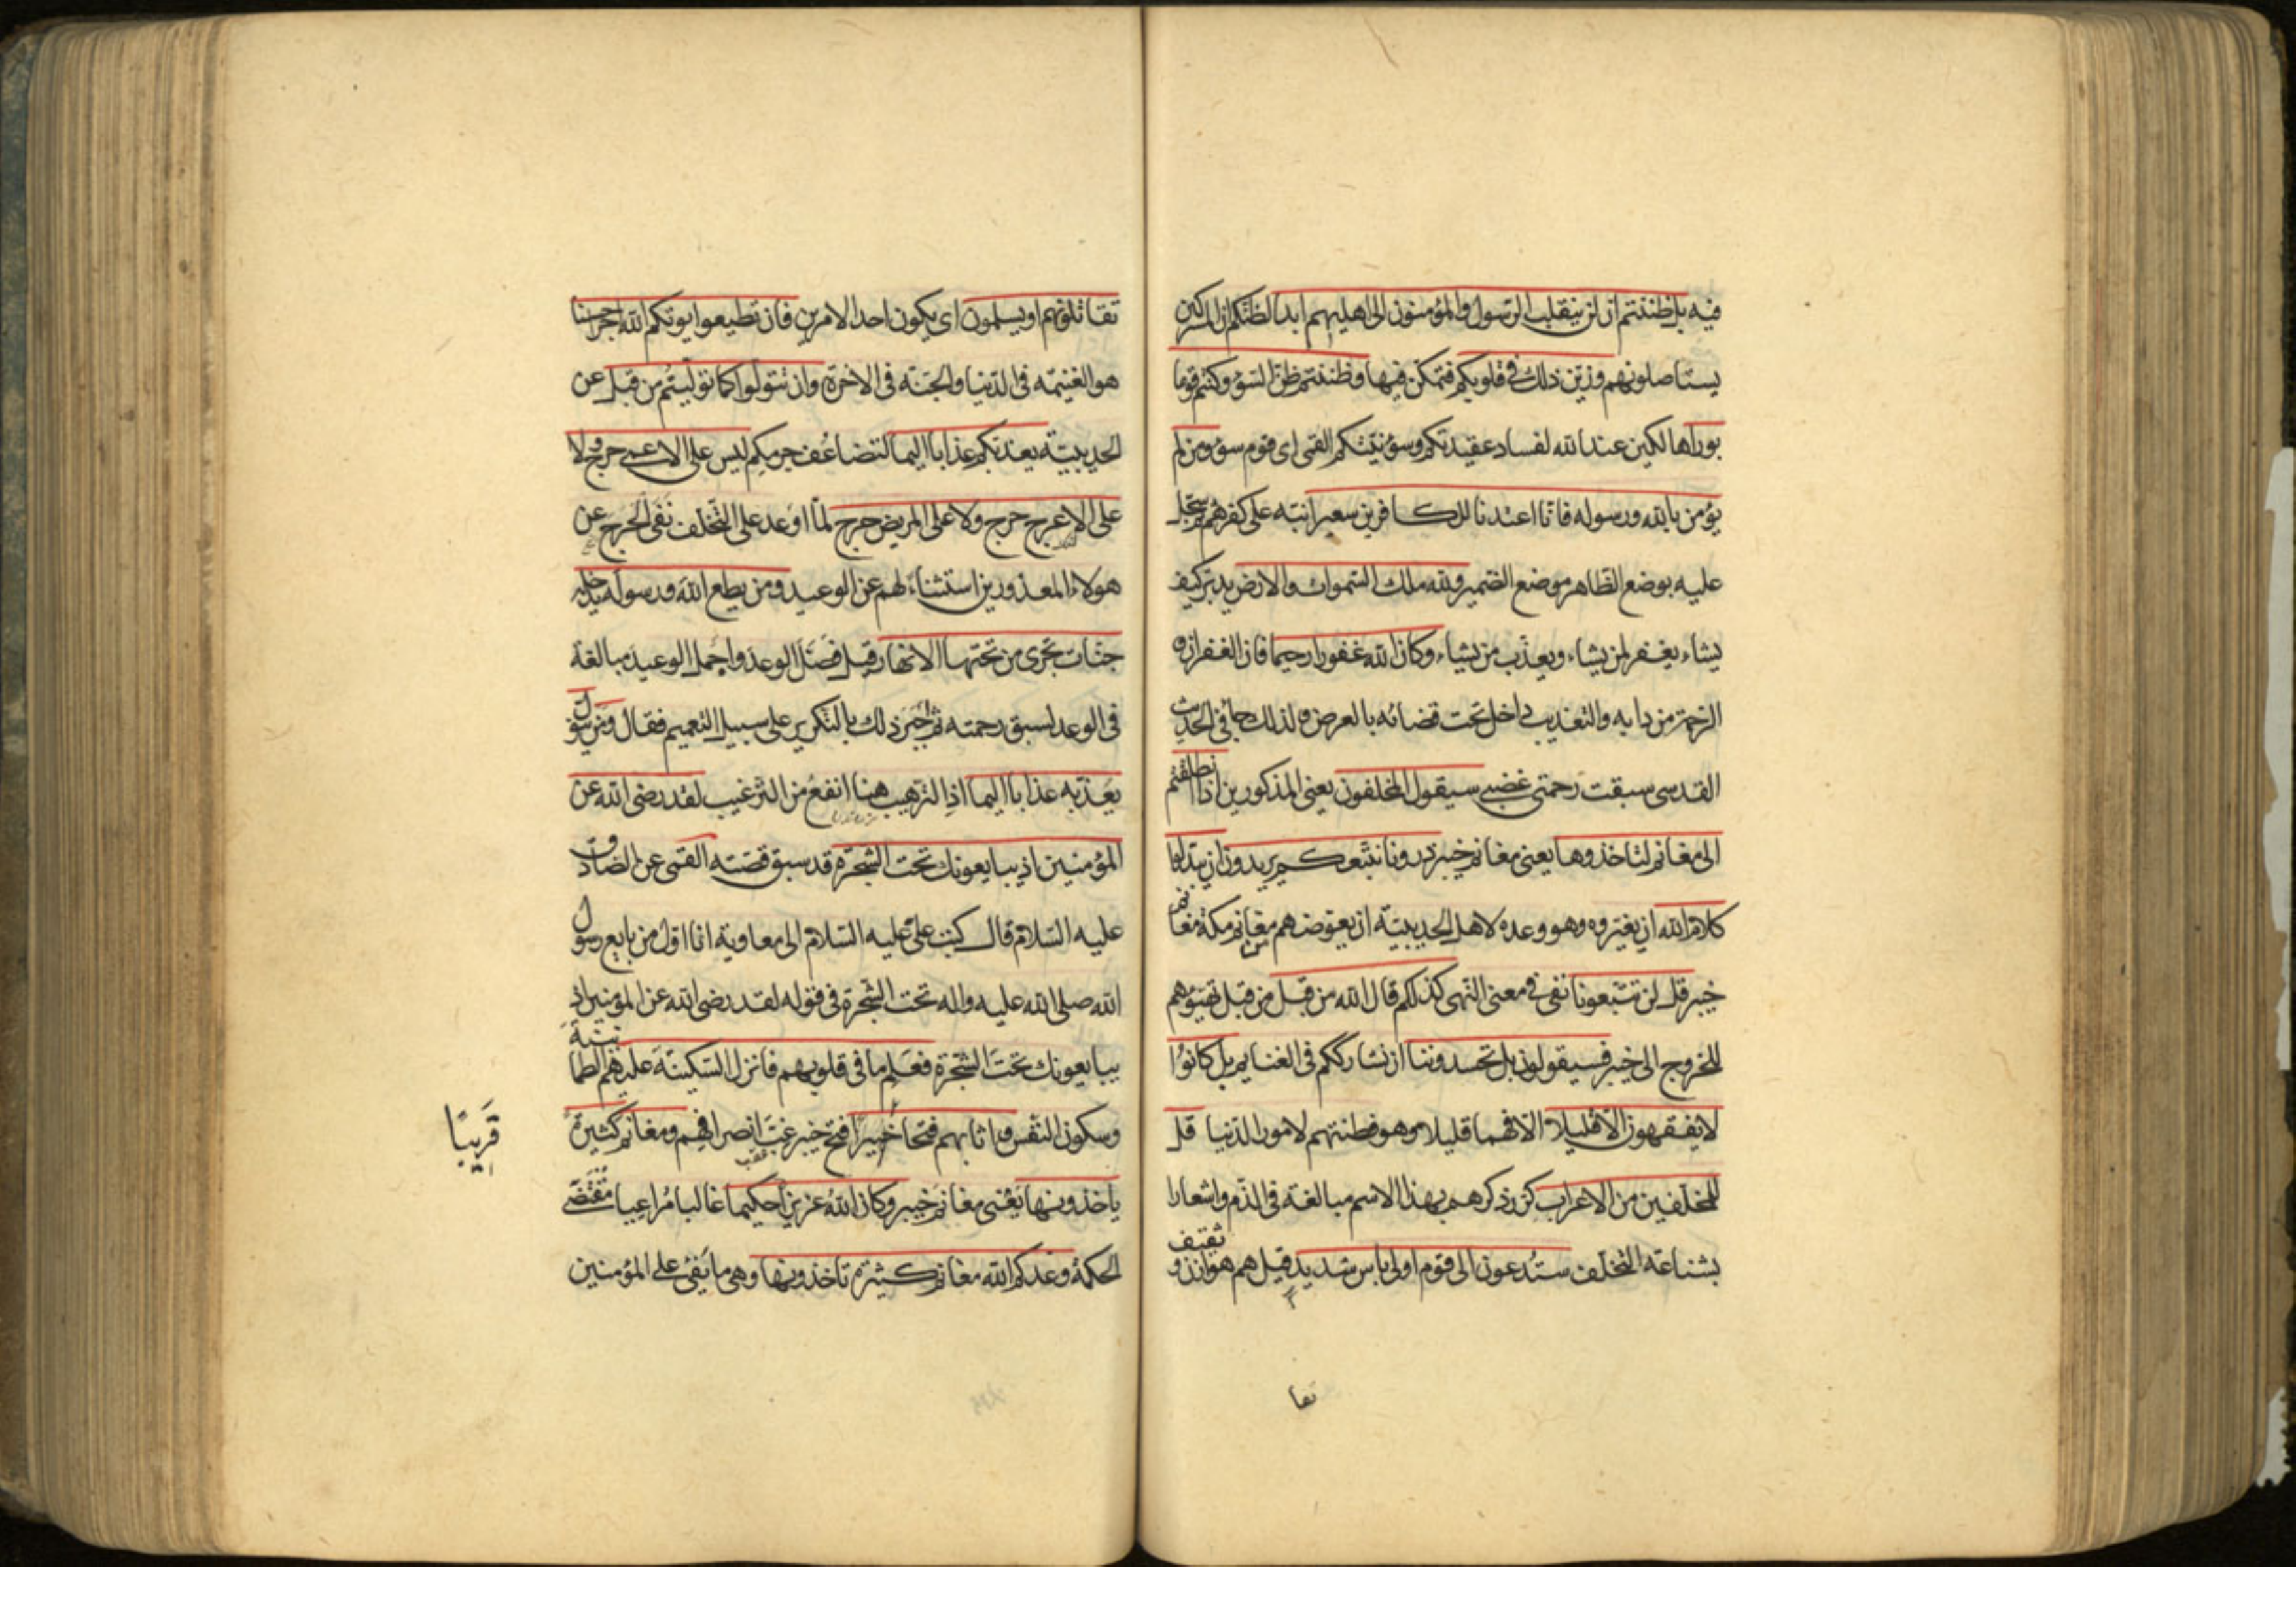 فيه بل ظننتم ان لن ينقلب الرسول والمؤمنون الى اهليهم ابدا لظنكم ان المشركين
يستاصلونهم وزين ذلك في قلوبكم فتمكن فيها وظننتم ظن السوء وكنتم قوما
بورا هالكين عند الله لفساد عقيدتكم وسوء نيتكم القمى اى قوم سوء ومن لم
يؤمن بالله ورسوله فانا اعتدنا للكافرين سعيرا نبه على كفرهم ثم سجل
عليه بوضع الظاهر موضع الضمير ولله ملك السموات والارض يدبر كيف
يشاء يغفر لمن يشاء ويعذب من يشاء وكان الله غفورا رحيما فان الغفران و
الرحمة من دابه والتعذيب داخل تحت قضائه بالعرض ولذلك جاء في الحديث
القدسى سبقت رحمتى غضبى سيقول المخلفون يعنى المذكورين اذا انطلقتم
الى مغانم لتاخذوها يعنى مغانم خيبر ذرونا نتبعكم يريدون ان يبدلوا
كلام الله ان يغيروه وهو وعده لاهل الحديبية ان يعوضهم من مغانم مكة مغانم
خيبر قل لن تتبعونا نفى في معنى النهى كذلكم قال الله من قبل من قبل تهيؤهم
للخروج الى خيبر فسيقولون بل تحسدوننا ان نشارككم في الغنايم بل كانوا
لا يفقهون الا قليلا الا فهما قليلا وهو فطنتهم لامور الدنيا قل
للمخلفين من الاعراب كرر ذكرهم بهذا الاسم مبالغة في الذم واشعارا
بشناعة التخلف ستدعون الى قوم اولى باس شديد قيل هم هوازن و ثقيف
تقا
تقاتلونهم او يسلمون اى يكون احد الامرين فان تطيعوا يوتكم الله اجرا حسنا
هو الغنيمة في الدنيا والجنة في الاخرة وان تتولوا كما توليتم من قبل عن
الحديبية يعذبكم عذابا اليما لتضاعف جرمكم ليس على الاعمى حرج ولا
على الاعرج حرج ولا على المريض حرج لما اوعد على التخلف نفى الحرج عن
هولاء المعذورين استثناء لهم عن الوعيد ومن يطع الله ورسوله يدخله
جنات تجرى من تحتها الانهار قيل فصل الوعد واجمل الوعيد مبالغة
في الوعد لسبق رحمته ثم جبر ذلك بالتكرير على سبيل التعميم فقال ومن يتول
يعذبه عذابا اليما اذ الترهيب هنا انفع من الترغيب لقد رضى الله عن
المؤمنين اذ يبايعونك تحت الشجرة قد سبق قصته القمى عن الصادق
عليه السلام قال كتب على عليه السلام الى معاوية انا اول من بايع رسول
الله صلى الله عليه واله تحت الشجرة في قوله لقد رضى الله عن المؤمنين اذ
يبايعونك تحت الشجرة فعلم ما في قلوبهم فانزل السكينة عليهم الطمانينة
وسكون النفس واثابهم فتحا فتح خيبر غب انصرافهم ومغانم كثيرة
قريبا
ياخذونها يعنى مغانم خيبر وكان الله عزيزا حكيما غالبا مراعيا مقتضى
الحكمة وعدكم الله مغانم كثيرة تاخذونها وهى ما يفئ على المؤمنين